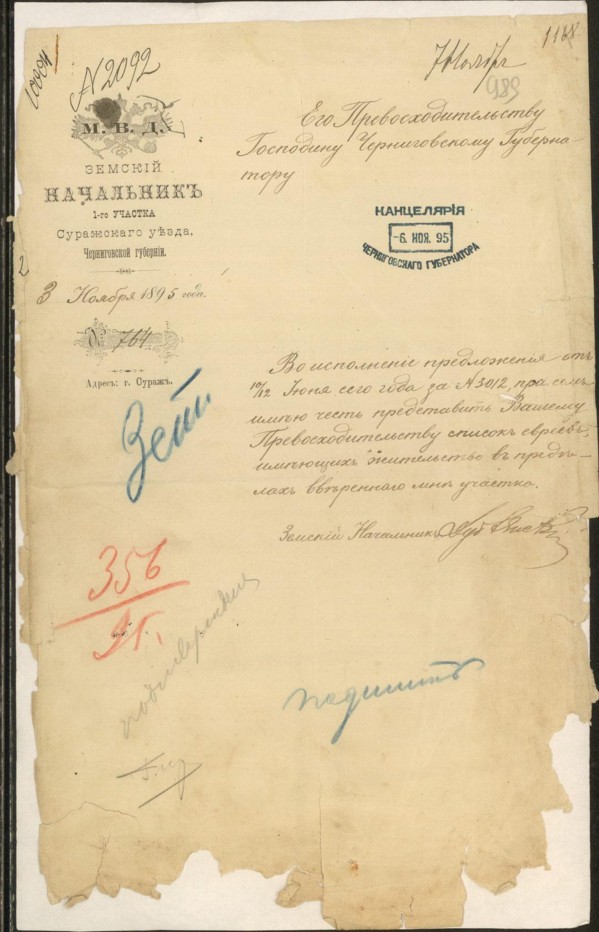 1168
7 Ноябр
989
N 2092
М. В. Д.
ЗЕМСКІЙ
НАЧАЛЬНИКЪ
1-го УЧАСТКА
Суражскаго уѣзда,
Черниговской губерніи.
2
3 Ноября 1895 года.
№ 764
Адресъ: г. Суражъ.
Его Превосходительству
Господину Черниговскому Губерна-
тору
КАНЦЕЛЯРІЯ
-6. НОЯ. 95
ЧЕРНИГОВСКАГО ГУБЕРНАТОРА
Во исполненіе предложенія отъ
10/12 Іюня сего года за N 3012, при семъ
имѣю честь представить Вашему
Превосходительству списокъ евреевъ,
имѣющихъ жительство въ предѣ-
лахъ ввѣреннаго мнѣ участка.
Земскій Начальникъ
356
95 г.
подшить